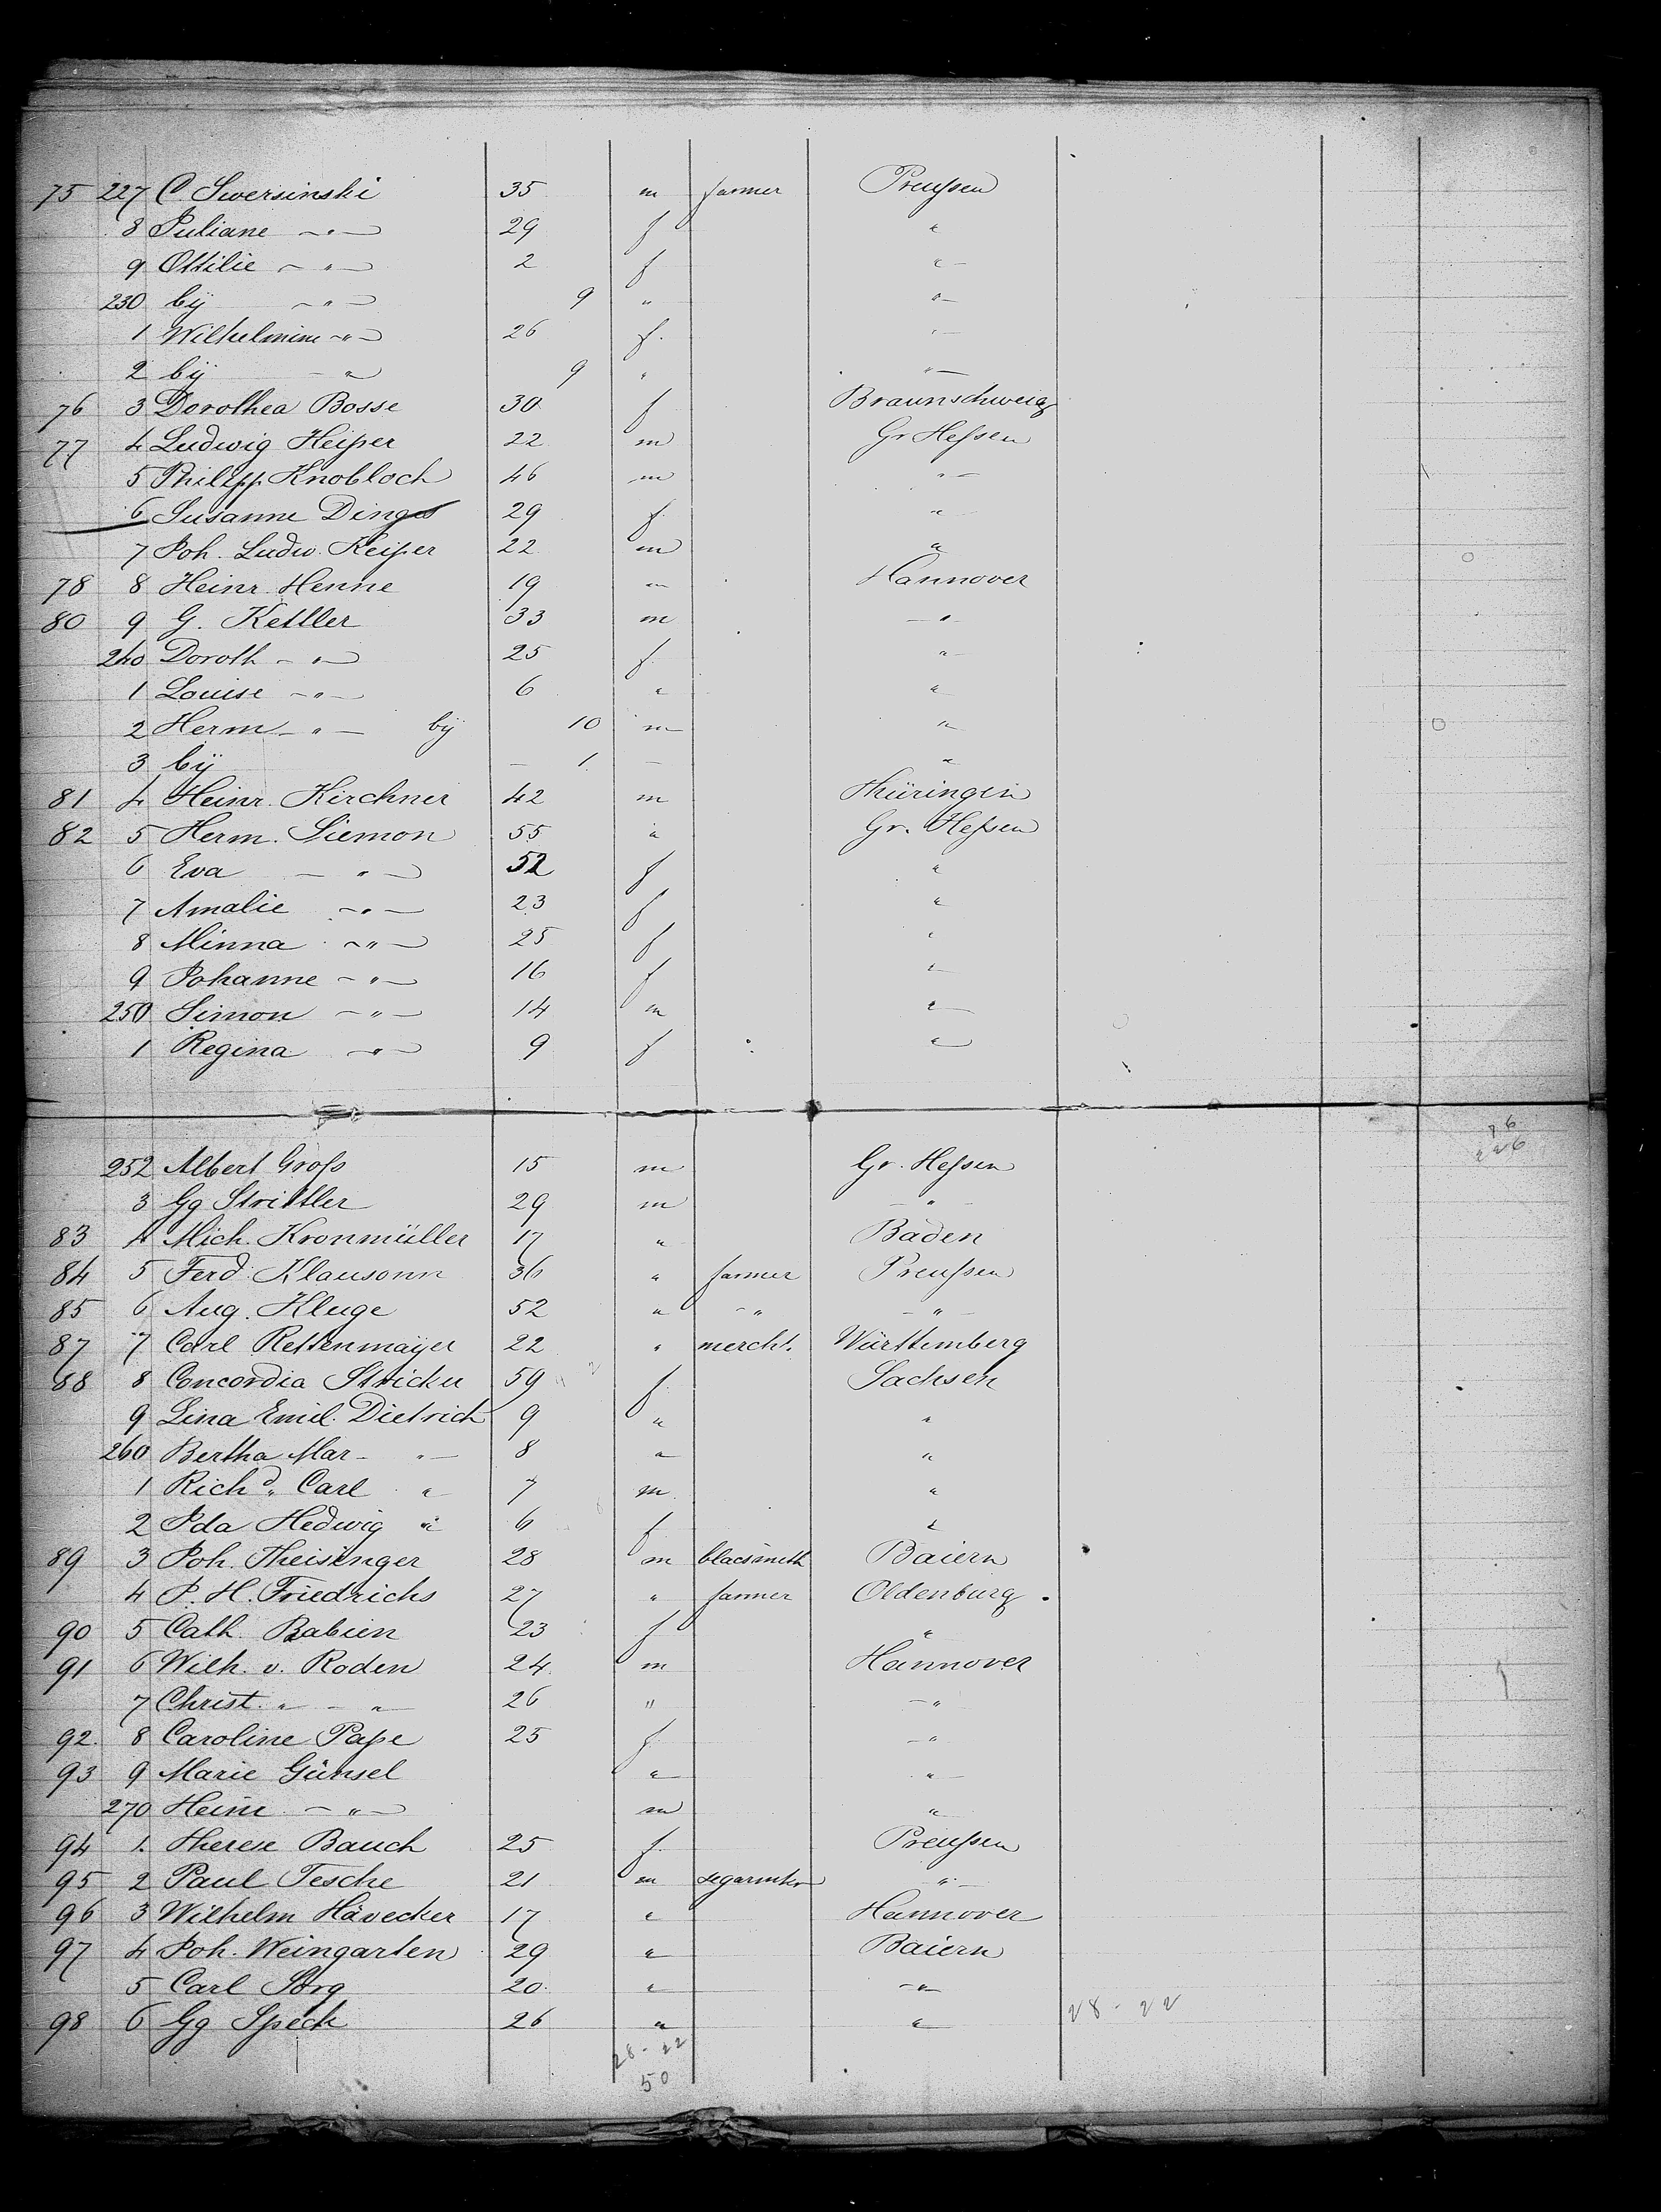 75 227 C Swersinski 35 m farmer Preußen
8 Juliane " 29 f "
9 Ottilie " 2 f "
230 bÿ " 9 " "
1 Wilhelmine " 26 f. "
2 bÿ " 9 " "
76 3 Dorothea Bosse 30 f Braunschweig
77 4 Ludwig Heißer 22 m Gr Heßen
5 Philipp Knobloch 46 m "
6 Susanne Dinges 29 f "
7 Joh. Ludw. Keißer 22 m "
78 8 Heinr. Henne 19 " Hannover
80 9 G. Kettler 33 m "
240 Doroth " 25 f "
1 Louise " 6 " "
2 Herm " bÿ 10 m "
3 bÿ — 1. — "
81 4 Heinr. Kirchner 42 m Thüringen
82 5 Herm. Siemon 55 " Gr. Heßen
6 Eva " 52 f "
7 Amalie " 23 f "
8 Minna " 25 f "
9 Johanne " 16 f "
250 Simon " 14 m "
1 Regina " 9 f "
76
226
252 Albert Groß 15 m Gr. Heßen
3 Gg Strittler 29 m "
83 4 Mich. Kronmüller 17 " Baden
84 5 Ferd. Klausonn 36 " farmer Preußen
85 6 Aug. Kluge 52 " " "
87 7 Carl Rettenmaÿer 22 " mercht. Württemberg
88 8 Concordia Stricker 59 f Sachsen
9 Lina Emil. Dietrich 9 " "
260 Bertha Mar " 8 " "
1 Richd. Carl " 7 m "
2 Ida Hedwig " 6 f "
89 3 Joh. Theisinger 28 m blacsmith Baiern
4 J. H. Friedrichs 27 " farmer Oldenburg.
90 5 Cath. Babien 23 f "
91 6 Wilh. v. Roden 24 m Hannover
7 Christ. " " 26 " "
92. 8 Caroline Pape 25 f "
93 9 Marie Günsel " "
270 Heinr " m "
94 1. Therese Bauch 25 f. Preußen
95 2 Paul Tesche 21 m segarmkr "
96 3 Wilhelm Hävecker 17 " Hannover
97 4 Joh. Weingarten 29 " Baiern
5 Carl Sorg 20. " "
98 6 Gg Speck 26 " " 28-22
28-22
50